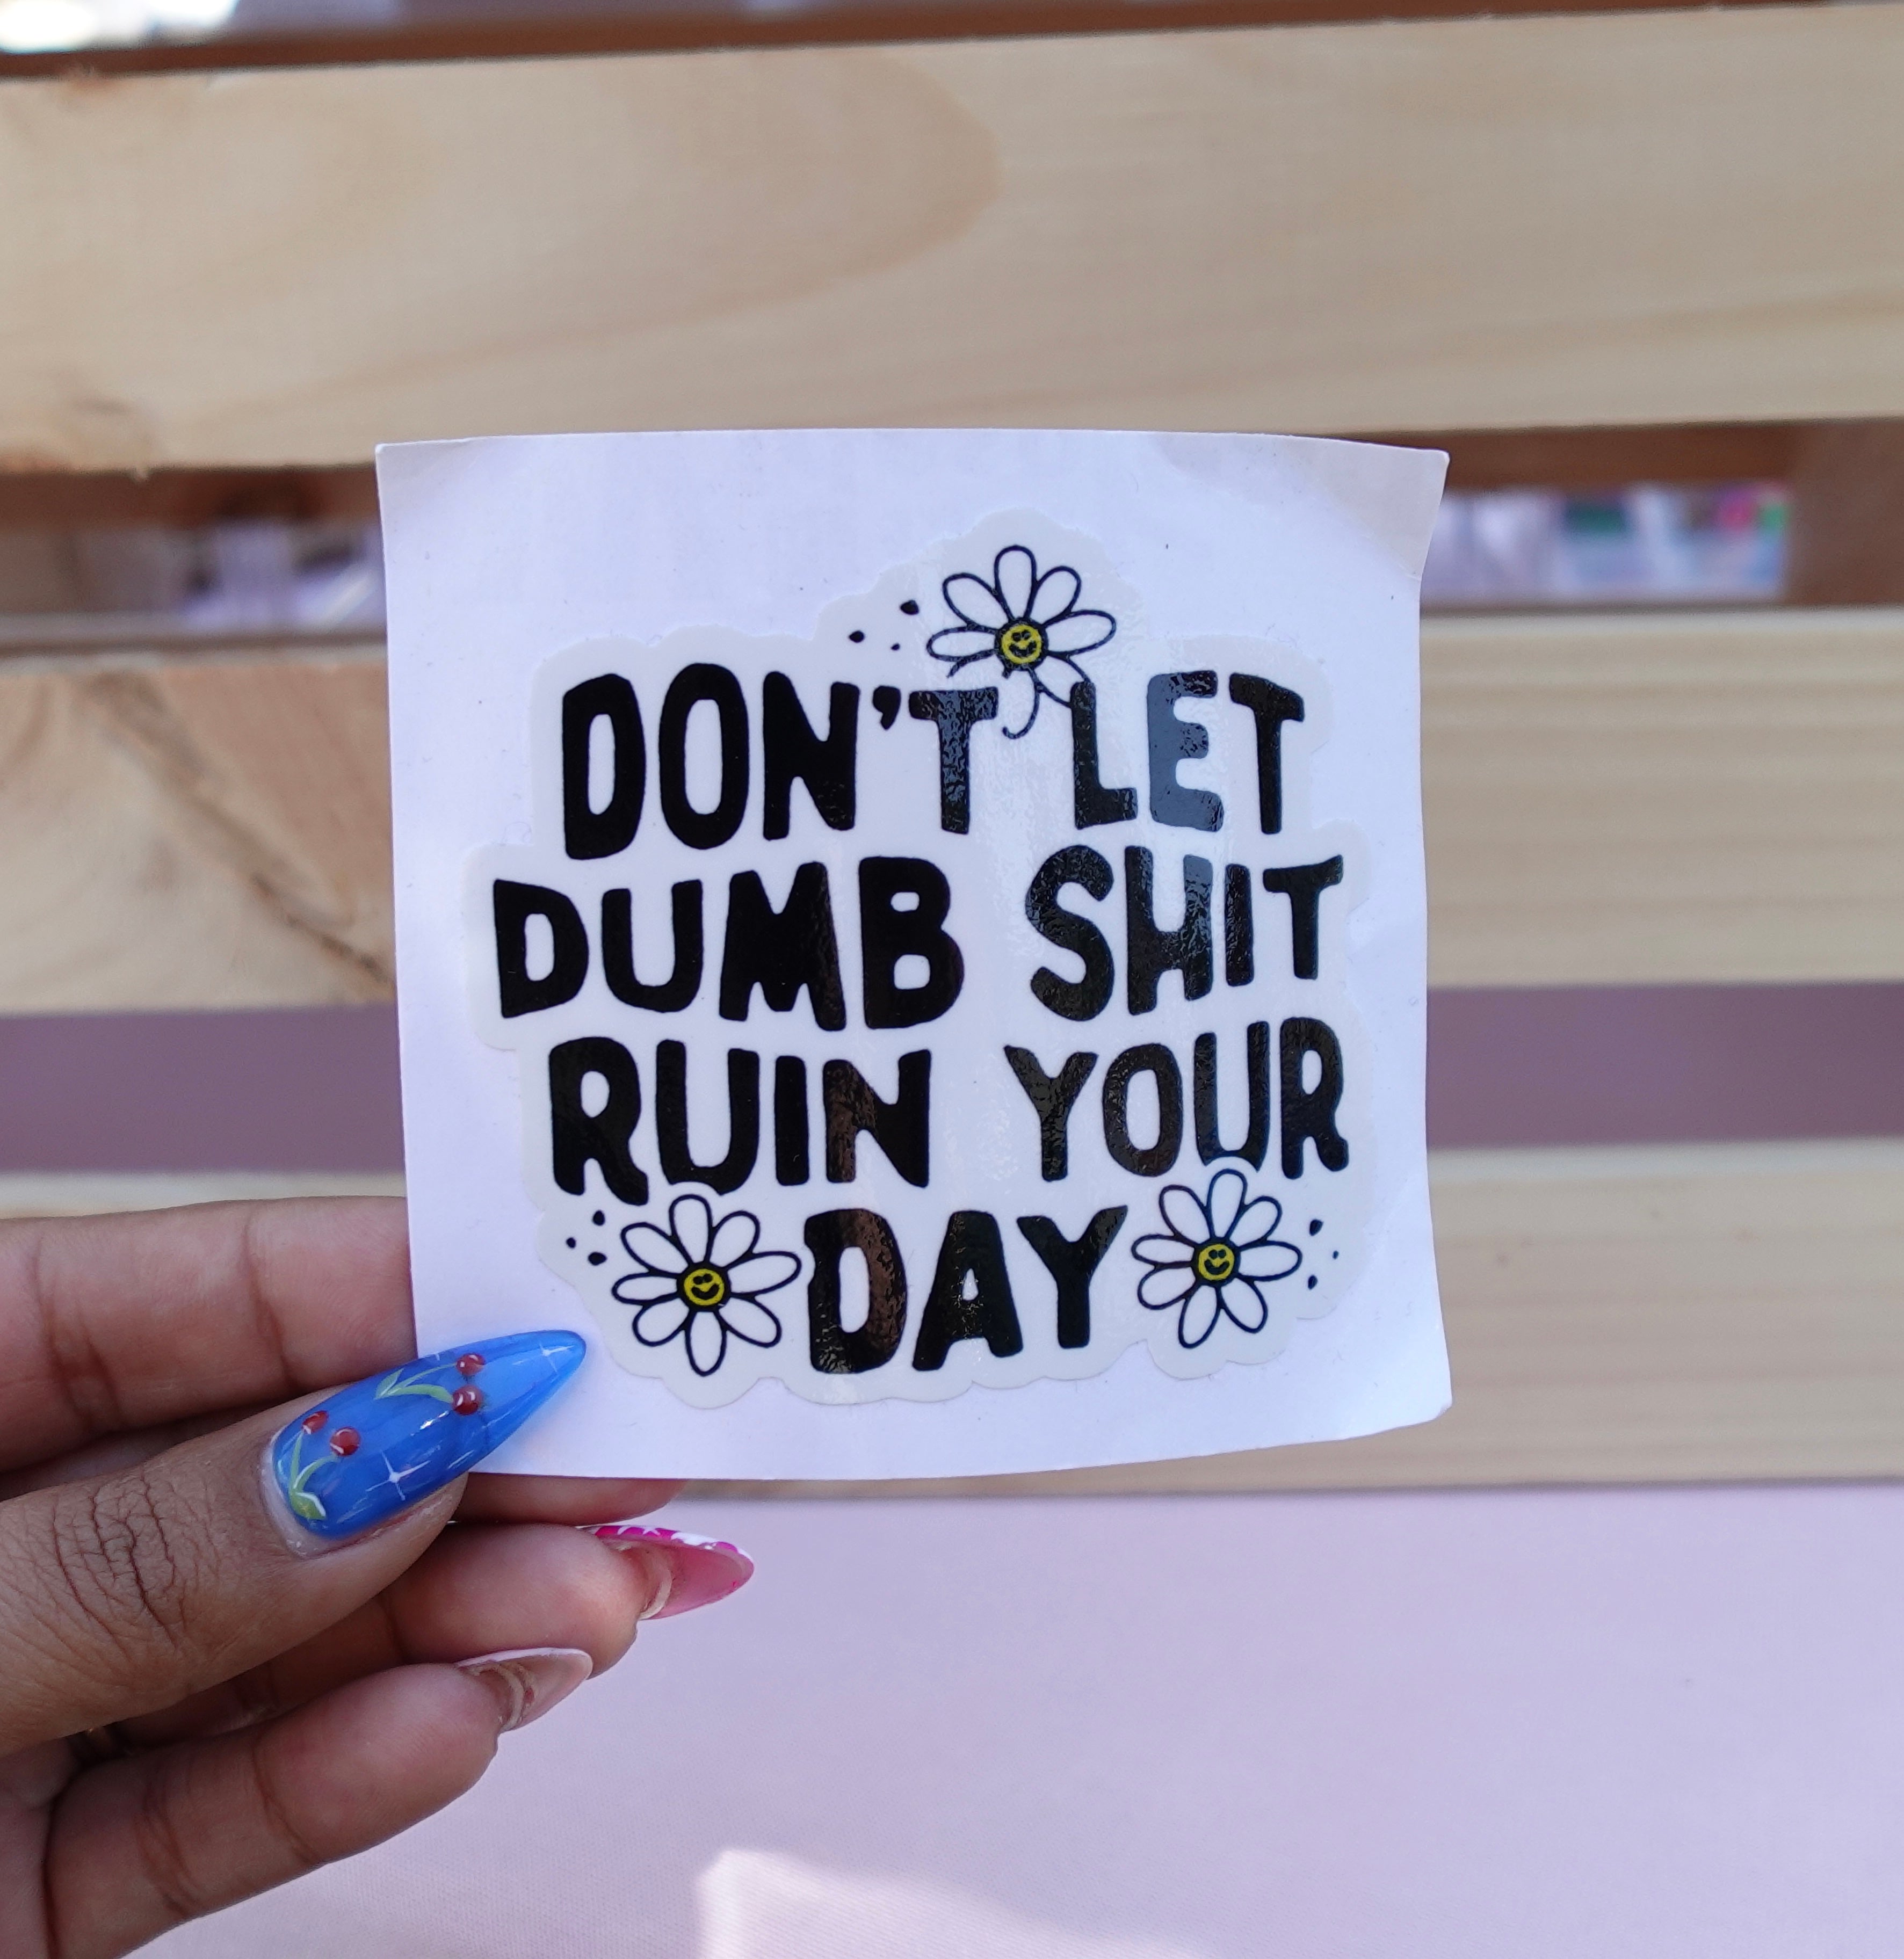 DON'T LET
DUMB SHIT
RUIN YOUR
DAY